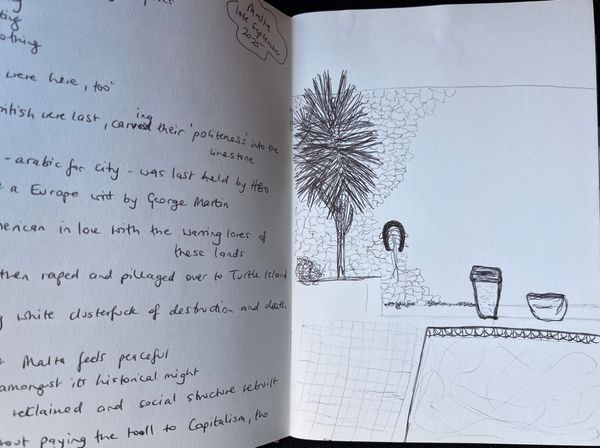 Malta
late September
2025
ting
othing
were here, too
ritish were last, carving their 'politeness' into the
limestone
- arabic for city - was last held by HBO
e a Europe writ by George Martin
merican in love with the warring lores of
these lands
then raped and pillaged over to Turtle Island
g white clusterfuck of destruction and death
t Malta feels peaceful
amongst its historical might
reclaimed and social structure rebuilt
hout paying the toll to Capitalism, the